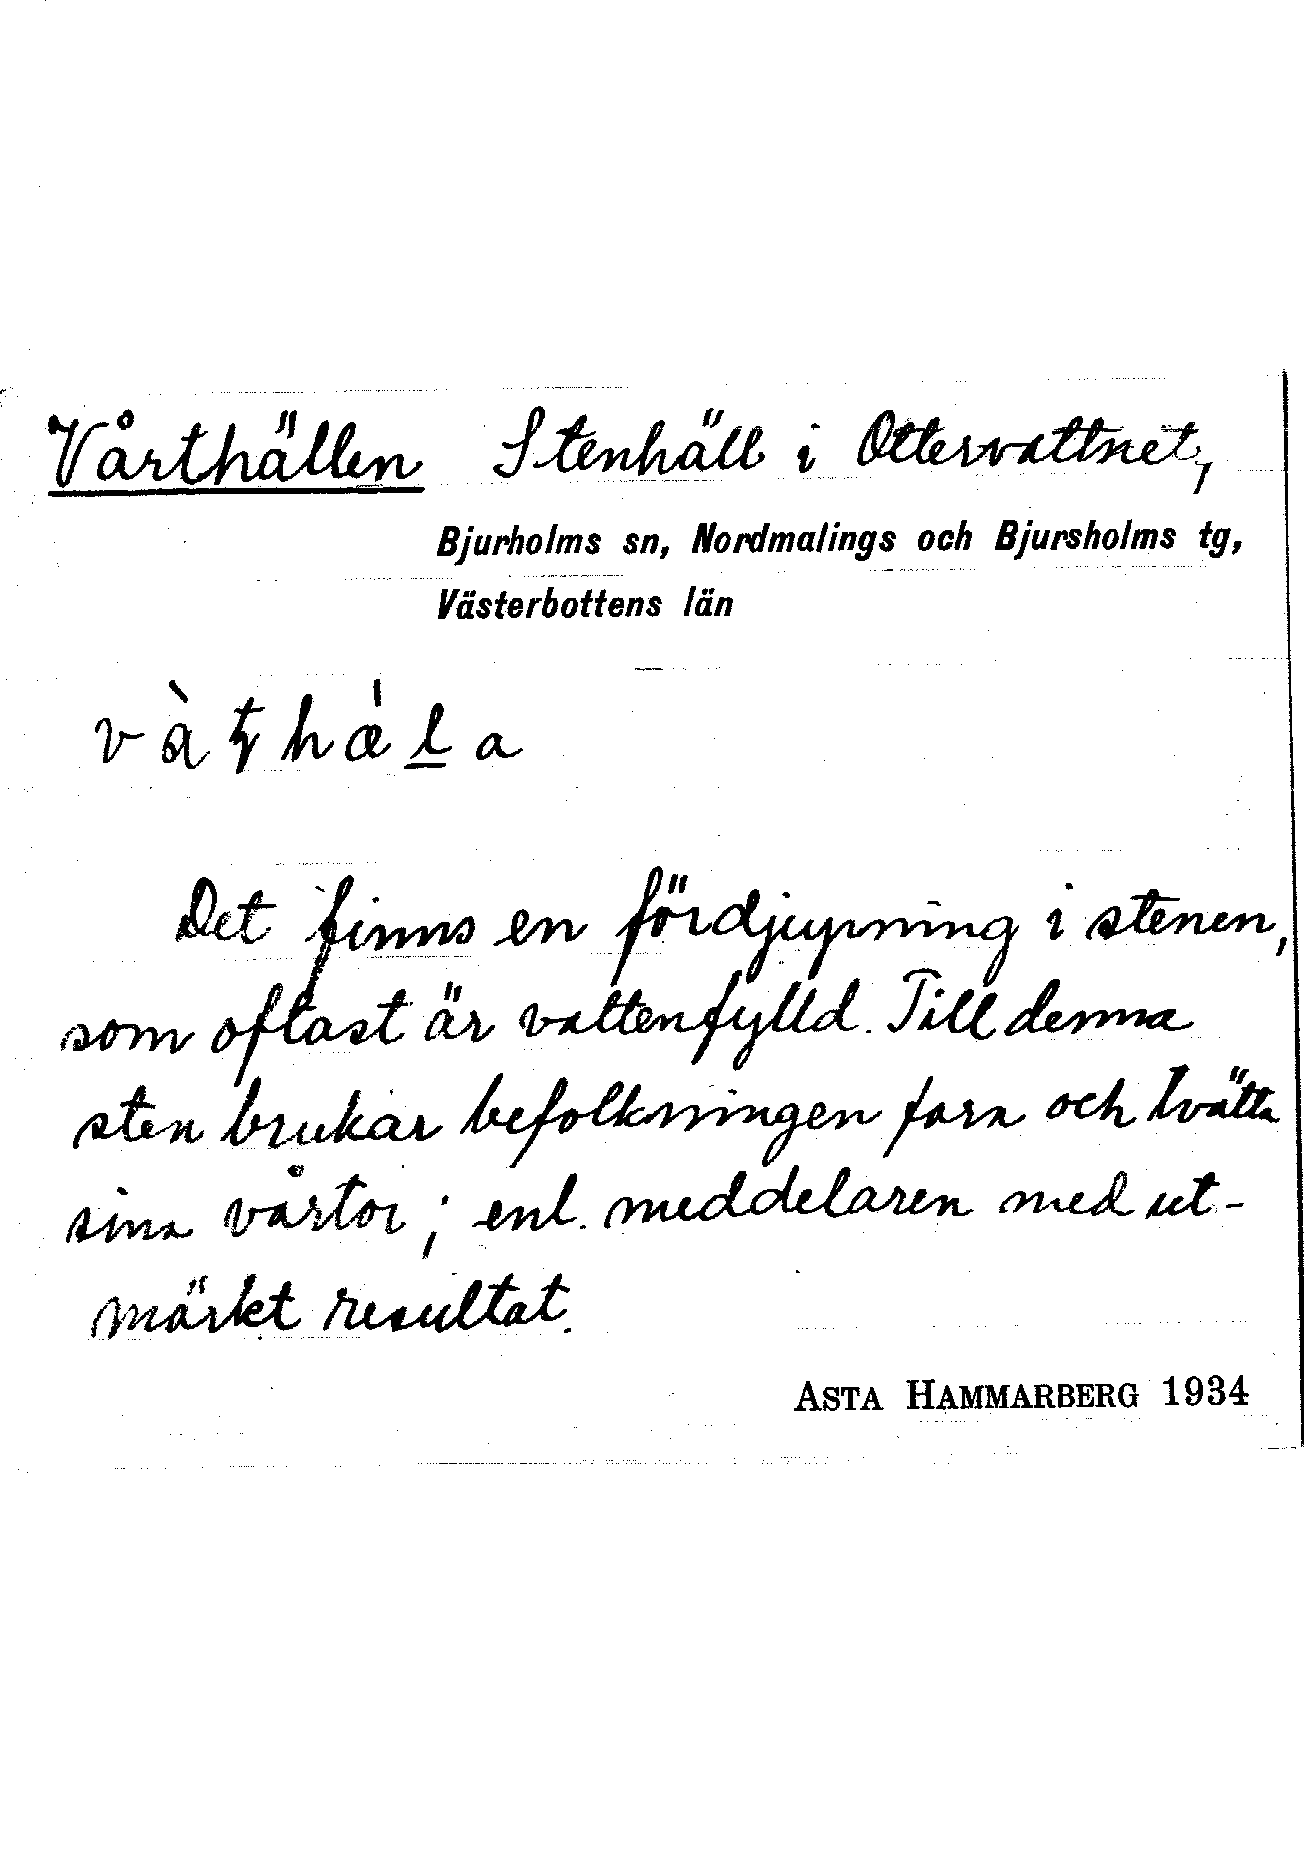 Vårthällen Stenhäll i Ottervattnet,
Bjurholms sn, Nordmalings och Bjursholms tg,
Västerbottens län
Det finns en fördjupning i stenen,
som oftast är vattenfylld. Till denna
sten brukar befolkningen fara och tvätta
sina vårtor; enl. meddelaren med ut-
märkt resultat.
ASTA HAMMARBERG 1934